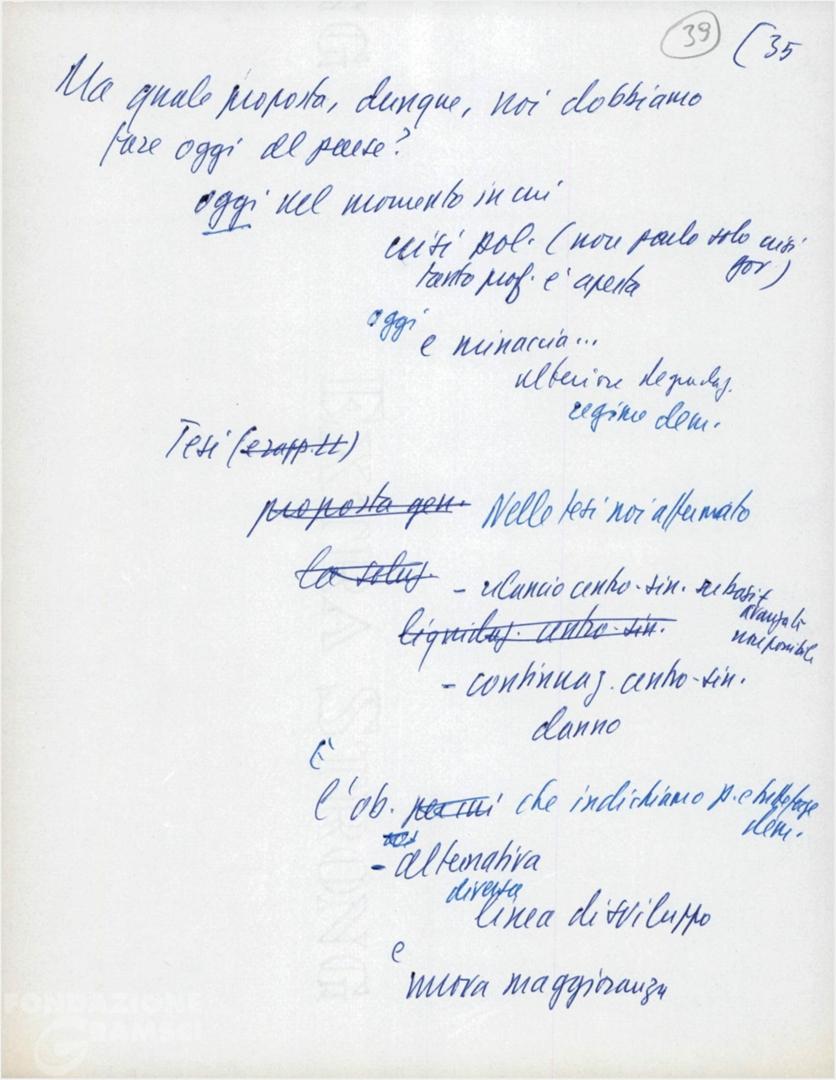 39 (35
Ma quale proposta, dunque, noi dobbiamo
fare oggi al paese?
oggi nel momento in cui
crisi pol. (non parlo solo crisi
gov.)
tanto prof. è aperta
oggi
e minaccia...
ulteriore degradaz.
regime dem.
Tesi (e rapp. tt)
proposta gen. Nelle tesi noi affermato
la soluz.
- rilancio centro-sin. su basi +
avanzate
non possibile
liquidaz. centro-sin.
- continuaz. centro-sin.
danno
E
l'ob. per cui che indichiamo p. e tutte forze
dem.
- alternativa
diversa
linea di sviluppo
e
nuova maggioranza
FONDAZIONE
GRAMSCI